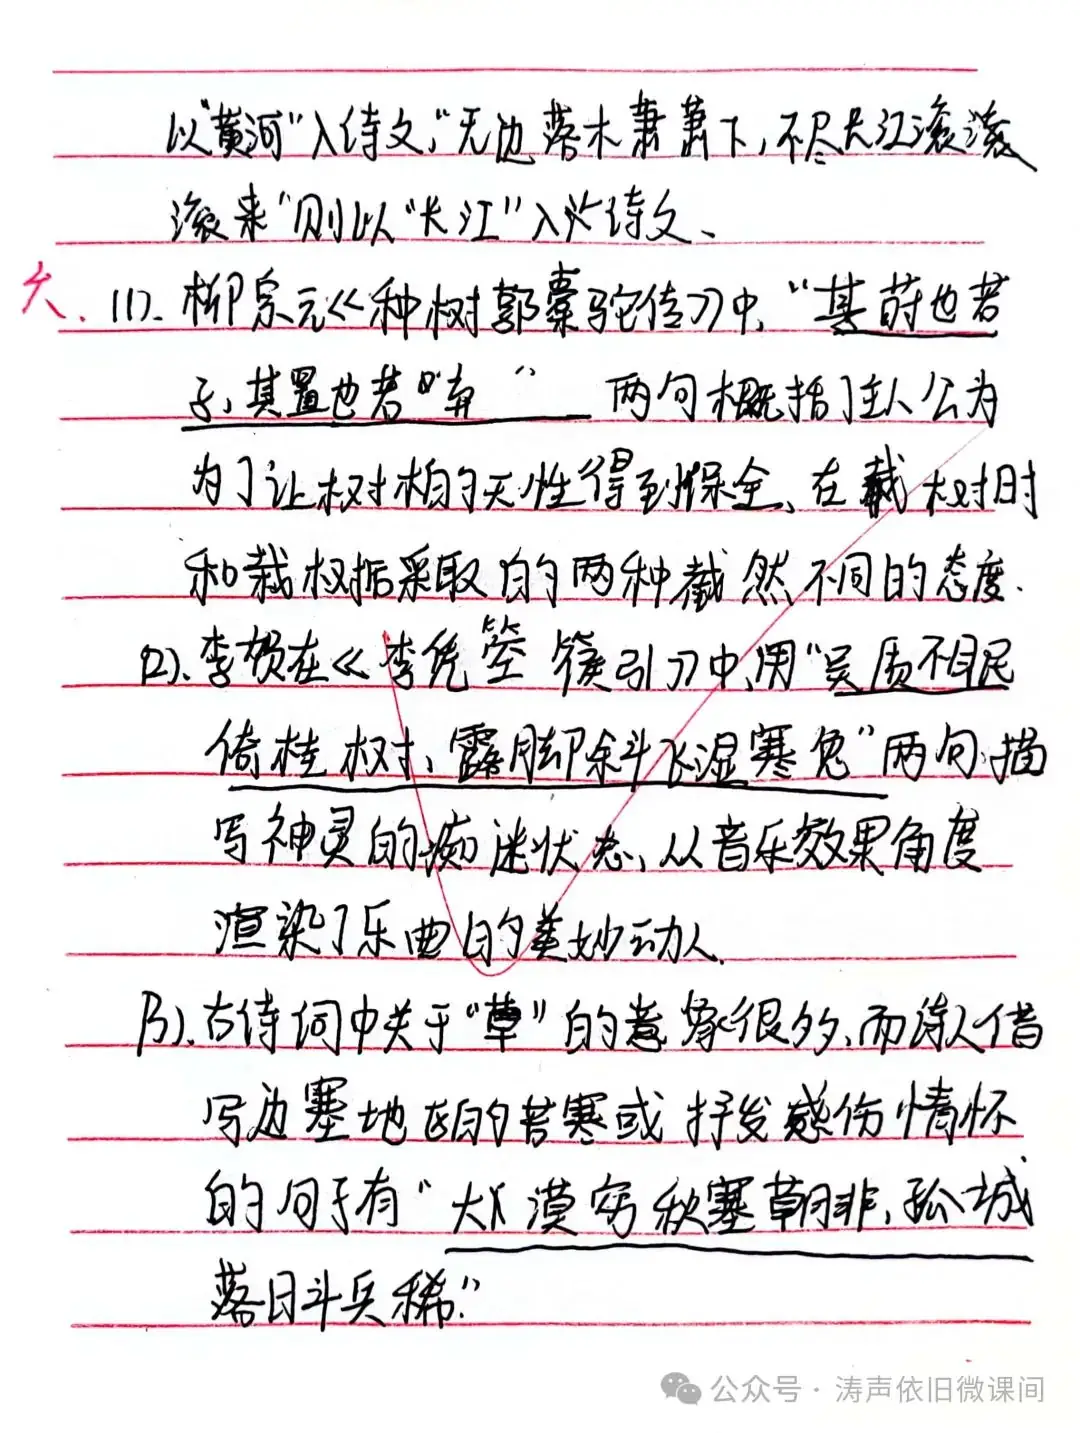 以“黄河”入诗文，“无边落木萧萧下，不尽长江滚滚
滚来”则以“长江”入诗文、
六.(1).柳宗元《种树郭橐驼传》中，“其莳也若
子，其置也若弃”两句概括了主人公为
为了让树木的天性得到保全、在栽树时
和栽树后采取的两种截然不同的态度.
(2).李贺在《李凭箜篌引》中，用“吴质不眠
倚桂树，露脚斜飞湿寒兔”两句，描
写神灵的痴迷状态，从音乐效果角度
渲染了乐曲的美妙动人.
(3).古诗词中关于“草”的意象很多，而诗人借
写边塞地区的苦寒或抒发感伤情怀
的句子有“大漠穷秋塞草腓，孤城
落日斗兵稀.”
公众号·涛声依旧微课间